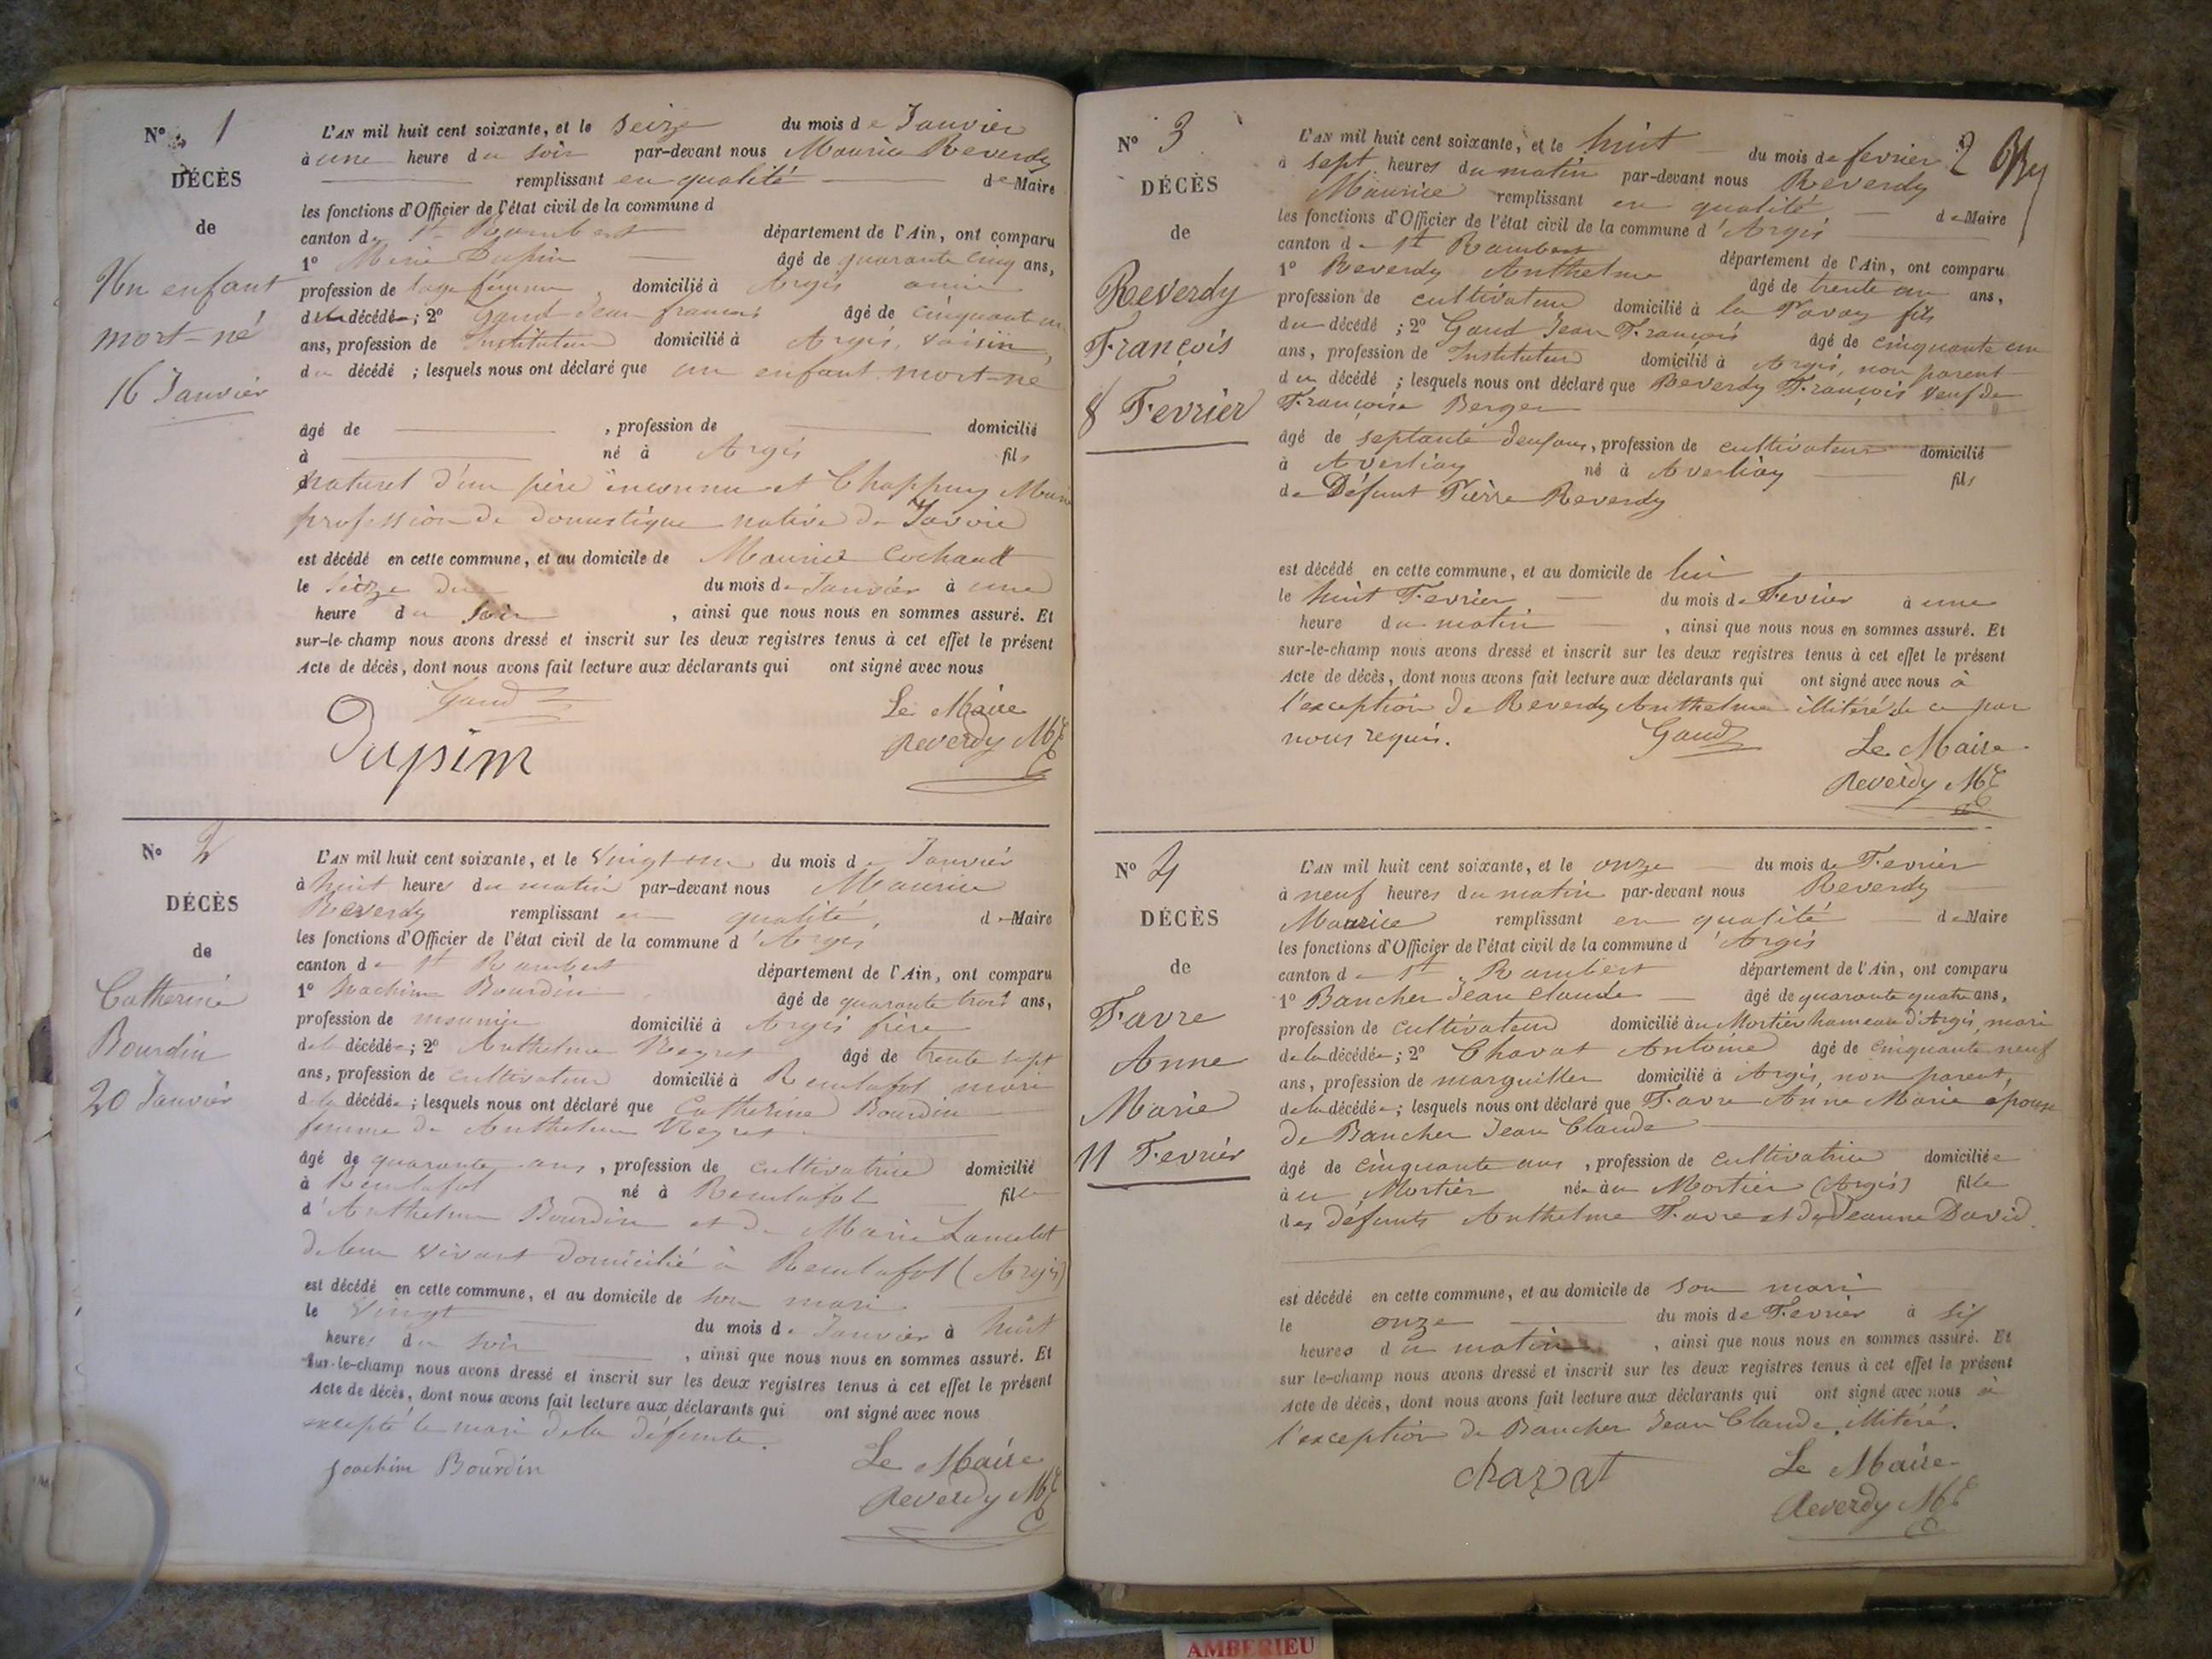 N° 1
DÉCÈS
de
Un enfant
mort-né
16 Janvier
L'AN mil huit cent soixante, et le Seize du mois de Janvier
à une heure du soir par-devant nous Maurice Reverdy
remplissant en qualité de Maire
les fonctions d'Officier de l'état civil de la commune d
canton de St Rambert département de l'Ain, ont comparu
1° Dupin âgé de quarante cinq ans,
profession de sage femme domicilié à Argis amie
du décédé ; 2° Gaud Jean françois âgé de cinquante un
ans, profession de Instituteur domicilié à Argis, voisin,
du décédé ; lesquels nous ont déclaré que un enfant mort-né
âgé de , profession de domicilié
à né à Argis fils
naturel d'un père inconnu et Chappuy Marie
profession de domestique native de Savoie
est décédé en cette commune, et au domicile de Maurice Cochaud
le seize du du mois de Janvier à une
heure du soir , ainsi que nous nous en sommes assuré. Et
sur-le-champ nous avons dressé et inscrit sur les deux registres tenus à cet effet le présent
Acte de décès, dont nous avons fait lecture aux déclarants qui ont signé avec nous
Gaud Le Maire
Dupin Reverdy
N° 2
DÉCÈS
de
Catherine
Bourdin
20 Janvier
L'AN mil huit cent soixante, et le Vingt un du mois de Janvier
à huit heures du matin par-devant nous Maurice
Reverdy remplissant en qualité de Maire
les fonctions d'Officier de l'état civil de la commune d'Argis
canton de St Rambert département de l'Ain, ont comparu
1° Joachim Bourdin âgé de quarante trois ans,
profession de meunier domicilié à Argis frère
de la décédée ; 2° Anthelme Neyret âgé de trente sept
ans, profession de cultivateur domicilié à Reculafol mari
de la décédée ; lesquels nous ont déclaré que Catherine Bourdin
femme de Anthelme Neyret
âgé de quarante ans , profession de cultivatrice domicilié
à Reculafol né à Reculafol fille
d'Anthelme Bourdin et de Marie
de leur vivant domicilié à Reculafol (Argis)
est décédé en cette commune, et au domicile de son mari
le Vingt du mois de Janvier à huit
heures du soir , ainsi que nous nous en sommes assuré. Et
sur-le-champ nous avons dressé et inscrit sur les deux registres tenus à cet effet le présent
Acte de décès, dont nous avons fait lecture aux déclarants qui ont signé avec nous
excepté le mari de la défunte.
Joachim Bourdin Le Maire
Reverdy
N° 3
DÉCÈS
de
Reverdy
François
8 Fevrier
2
L'AN mil huit cent soixante, et le huit du mois de fevrier
à sept heures du matin par-devant nous Reverdy
Maurice remplissant en qualité de Maire
les fonctions d'Officier de l'état civil de la commune d'Argis
canton de St Rambert département de l'Ain, ont comparu
1° Reverdy Anthelme âgé de trente un ans,
profession de cultivateur domicilié à la fils
du décédé ; 2° Gaud Jean François âgé de cinquante un
ans, profession de Instituteur domicilié à Argis, non parent
du décédé ; lesquels nous ont déclaré que Reverdy François veuf de
Françoise Berger
âgé de septante deux ans, profession de cultivateur domicilié
à Averliay né à Averliay fils
de Défunt Pierre Reverdy
est décédé en cette commune, et au domicile de lui
le huit Fevrier du mois de Fevrier à une
heure du matin , ainsi que nous nous en sommes assuré. Et
sur-le-champ nous avons dressé et inscrit sur les deux registres tenus à cet effet le présent
Acte de décès, dont nous avons fait lecture aux déclarants qui ont signé avec nous à
l'exception de Reverdy Anthelme illitéré de ce par
nous requis. Gaud Le Maire
Reverdy
N° 4
DÉCÈS
de
Favre
Anne
Marie
11 Fevrier
L'AN mil huit cent soixante, et le onze du mois de Fevrier
à neuf heures du matin par-devant nous Reverdy
Maurice remplissant en qualité de Maire
les fonctions d'Officier de l'état civil de la commune d'Argis
canton de St Rambert département de l'Ain, ont comparu
1° Bancher Jean Claude âgé de quarante quatre ans,
profession de cultivateur domicilié au Mortier hameau d'Argis mari
de la décédée ; 2° Chavat Antoine âgé de cinquante neuf
ans, profession de marguiller domicilié à Argis, non parent,
de la décédée ; lesquels nous ont déclaré que Favre Anne Marie epouse
de Bancher Jean Claude
âgé de cinquante ans , profession de cultivatrice domiciliée
au Mortier née au Mortier (Argis) fille
des défunts Anthelme Favre et de Jeanne David.
est décédé en cette commune, et au domicile de son mari
le onze du mois de Fevrier à six
heures du matin , ainsi que nous nous en sommes assuré. Et
sur le-champ nous avons dressé et inscrit sur les deux registres tenus à cet effet le présent
Acte de décès, dont nous avons fait lecture aux déclarants qui ont signé avec nous à
l'exception de Bancher Jean Claude, illitéré.
chavat Le Maire
Reverdy
AMBERIEU